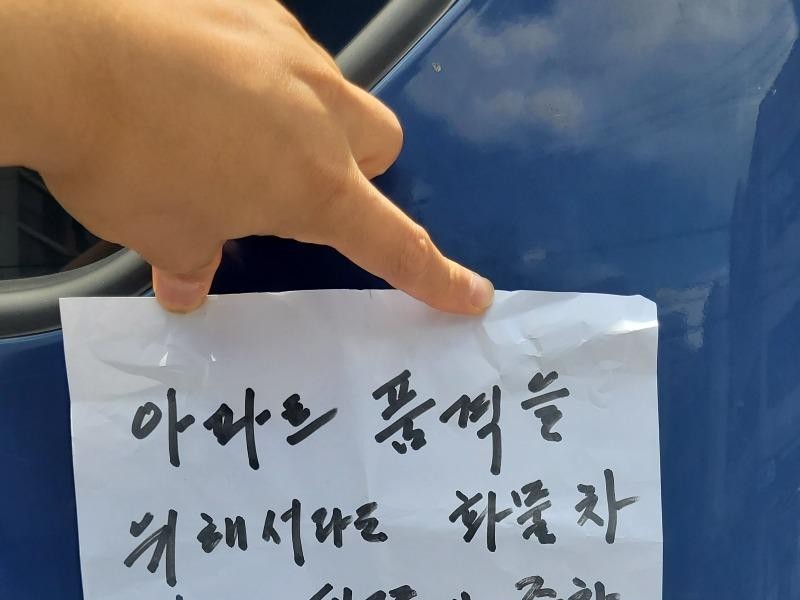 아파트 품격을
위해서라도 화물차